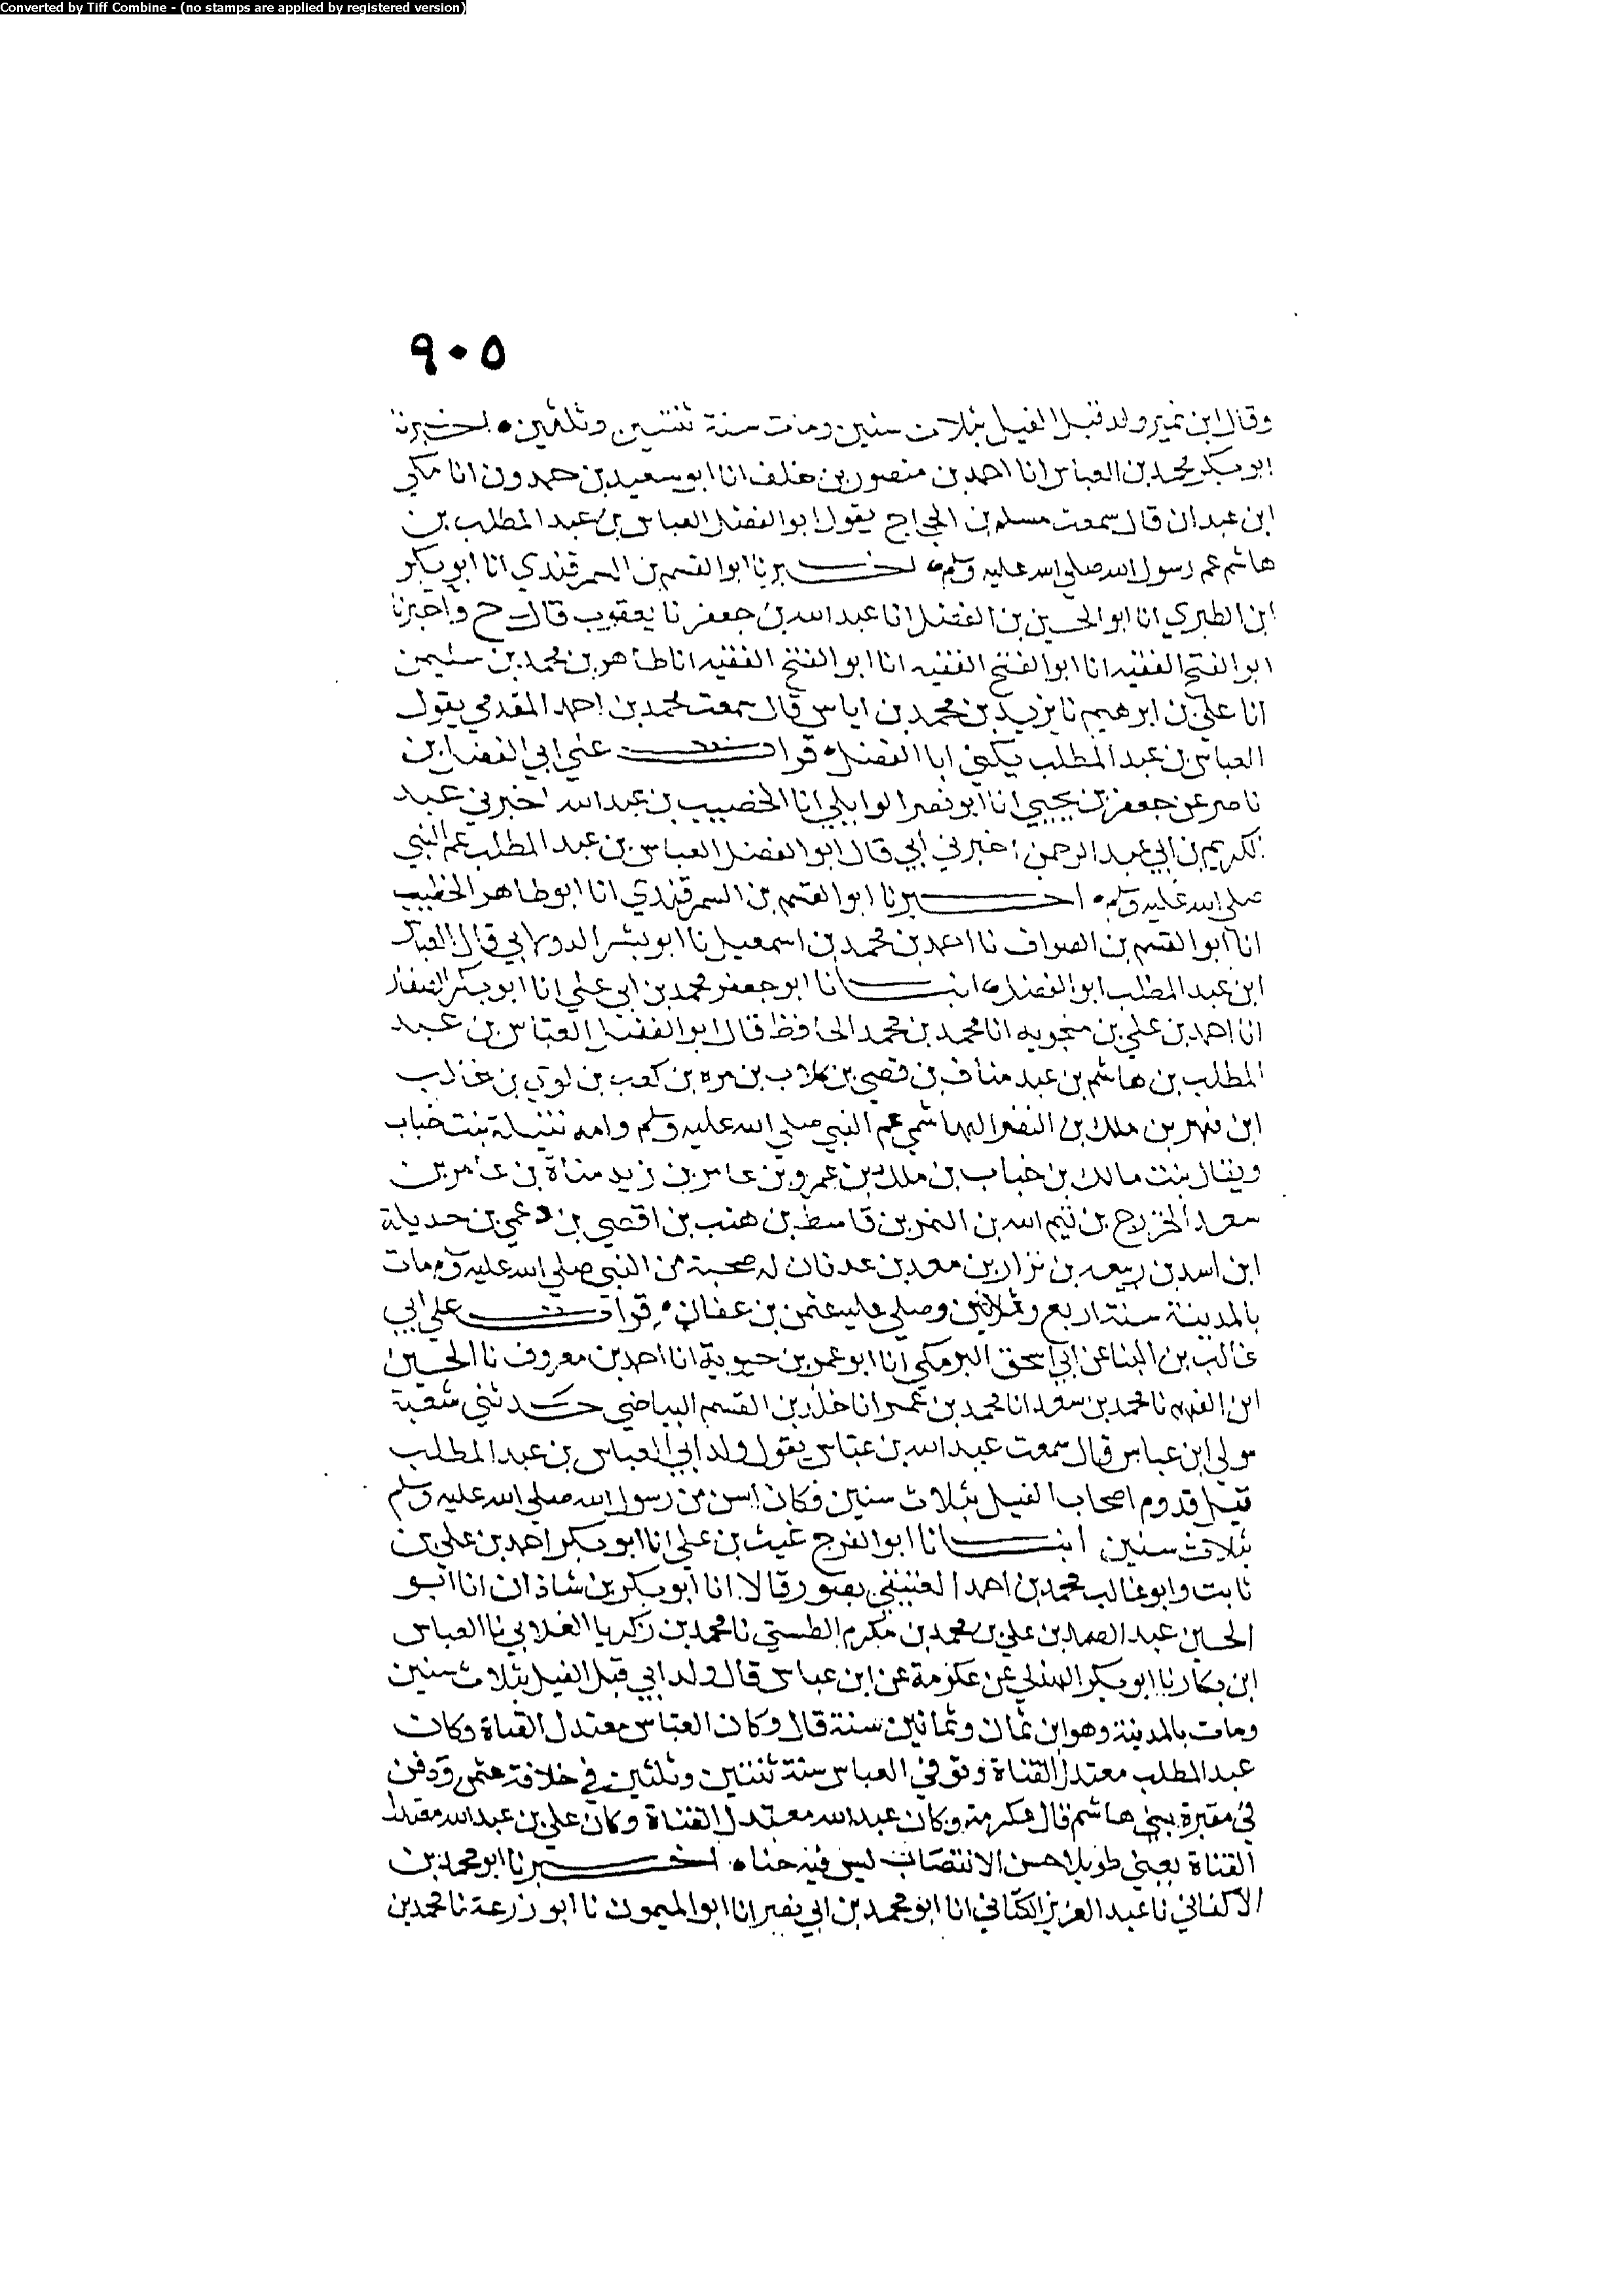 Converted by Tiff Combine - (no stamps are applied by registered version)
٩٠٥
وقال ابن نمير ولد قبل الفيل بثلاث سنين ومات سنة ثنتين وثلثين • اخبرنا
ابو بكر محمد بن العباس انا احمد بن منصور بن خلف انا ابو سعيد بن حمدون انا مكي
ابن عبدان قال سمعت مسلم بن الحجاج يقول ابو الفضل العباس بن عبد المطلب بن
هاشم عم رسول الله صلى الله عليه وسلم • اخبرنا ابو القسم بن السمرقندي انا ابو بكر
ابن الطبري انا ابو الحسين بن الفضل انا عبد الله بن جعفر نا يعقوب قال ح واخبرنا
ابو الفتح الفقيه انا ابو الفتح الفقيه انا ابو الفتح الفقيه انا طاهر بن محمد بن سليمن
انا علي بن ابرهيم نا يزيد بن محمد بن اياس قال سمعت محمد بن احمد المقدمي يقول
العباس بن عبد المطلب يكنى ابا الفضل • قرات على ابي الفضل بن
ناصر عن جعفر بن يحيي انا ابو نصر الوايلي انا الخصيب بن عبد الله اخبرني عبد
الكريم بن ابي عبد الرحمن اخبرني ابي قال ابو الفضل العباس بن عبد المطلب عم النبي
صلى الله عليه وسلم • اخبرنا ابو القسم بن السمرقندي انا ابو طاهر الخطيب
انا ابو القسم بن الصواف نا احمد بن محمد بن اسمعيل نا ابو بشر الدولابي قال العباس
ابن عبد المطلب ابو الفضل • انبانا ابو جعفر محمد بن ابي علي انا ابو بكر الصفار
انا احمد بن علي بن منجويه انا محمد بن محمد الحافظ قال ابو الفضل العباس بن عبد
المطلب بن هاشم بن عبد مناف بن قصي بن كلاب بن مره بن كعب بن لوي بن غالب
ابن فهر بن ملك بن النضر الهاشمي عم النبي صلى الله عليه وسلم وامه نتيلة بنت خباب
ويقال بنت مالك بن خباب بن ملك بن عمرو بن عامر بن زيد مناة بن عامر بن
سعد الخزرج بن تيم الله بن النمر بن قاسط بن هنب بن اقصي بن دعمي بن جديلة
ابن اسد بن ربيعه بن نزار بن معد بن عدنان له صحبة من النبي صلى الله عليه وسلم ومات
بالمدينة سنة اربع وثلاثين وصلى عليه عثمن بن عفان • قرات على ابي
غالب بن البنا عن ابي اسحق البرمكي انا ابو عمر بن حيوية انا احمد بن معروف نا الحسين
ابن الفهم نا محمد بن سعد انا محمد بن عمر انا خلد بن القسم البياضي حدثني شعبة
مولى ابن عباس قال سمعت عبد الله بن عباس يقول ولد ابي العباس بن عبد المطلب
قبل قدوم اصحاب الفيل بثلاث سنين فكان اسن من رسول الله صلى الله عليه وسلم
بثلاث سنين انبانا ابو الفرج غيث بن علي انا ابو بكر احمد بن علي بن
ثابت وابو غالب محمد بن احمد بصور قالا انا ابو بكر بن شاذان انا ابو
الحسين عبد الصمد بن علي بن محمد بن مكرم الطستي نا محمد بن زكريا الغلابي نا العباس
ابن بكار نا ابو بكر الهذلي عن عكرمة عن ابن عباس قال ولد ابي قبل الفيل بثلاث سنين
ومات بالمدينة وهو ابن ثمان وثمانين سنة قال وكان العباس معتدل القناة وكان
عبد المطلب معتدل القناة وتوفي العباس سنة ثنتين وثلثين في خلافة عثمن ودفن
في مقبرة بني هاشم قال عكرمة وكان عبد الله معتدل القناة وكان علي بن عبد الله معتدل
القناة يعني طويلا حسن الانتصاب ليس فيه حناه • اخبرنا ابو محمد بن
الاكفاني نا عبد العزيز الكتاني انا ابو محمد بن ابي نصر انا ابو الميمون نا ابو زرعة نا محمد بن